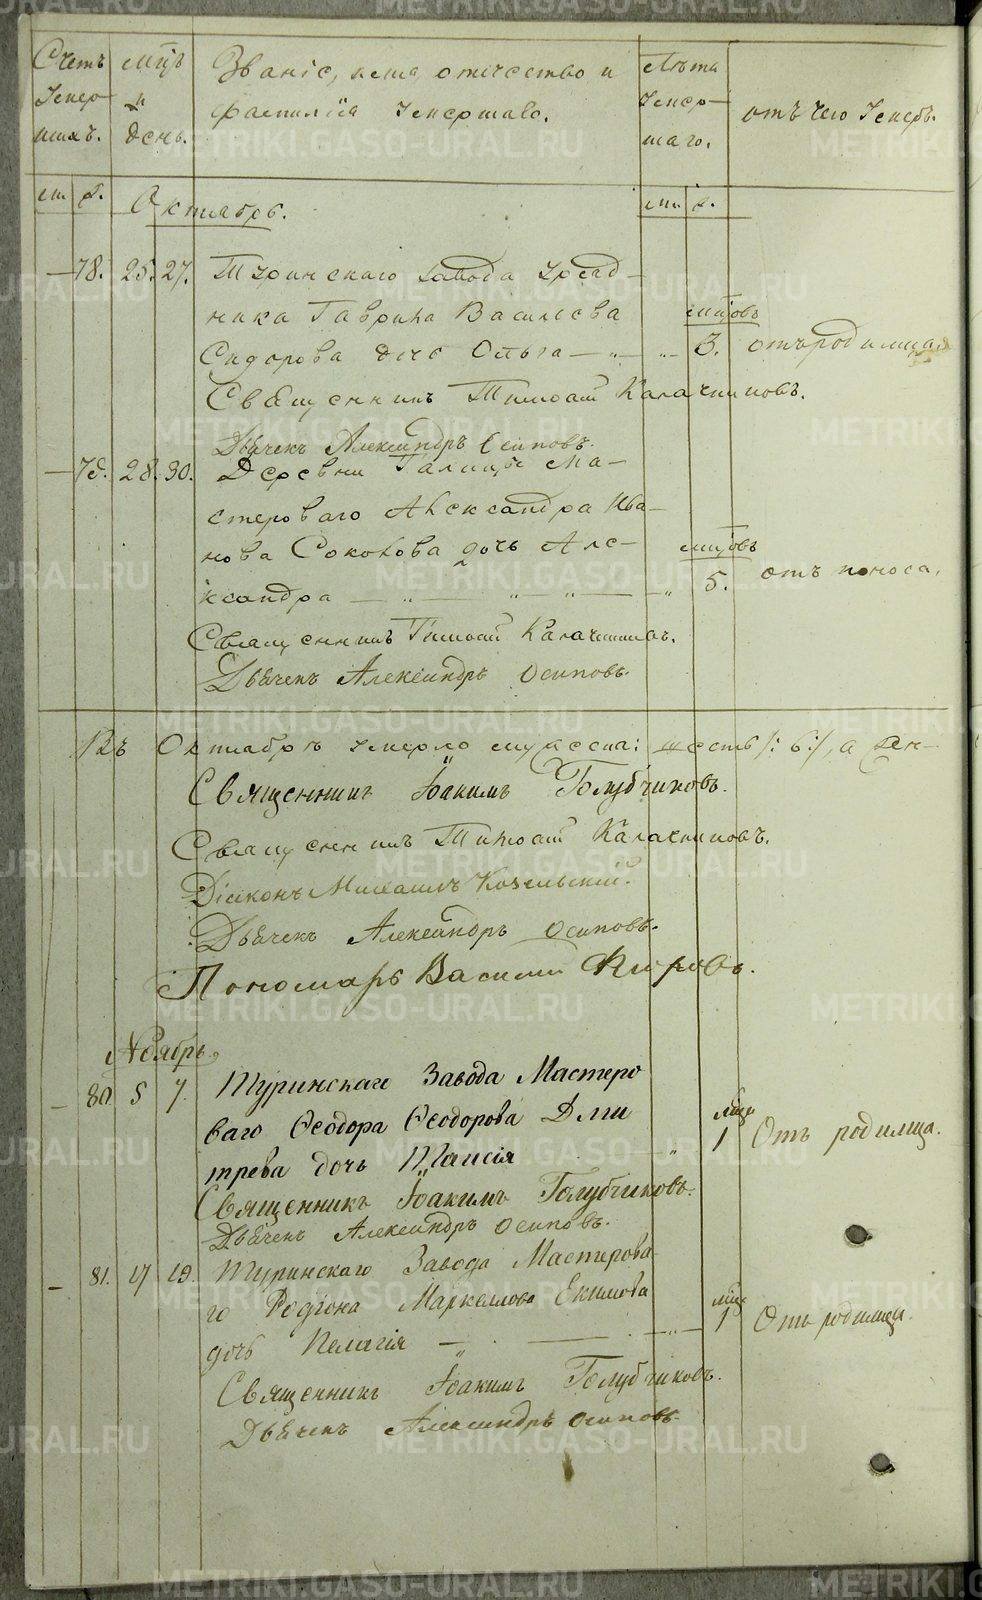 Счетъ умер-шихъ.
мцъ и день.
Званіе, имя, отчество и
фамилія умершаго.
Лѣта умер-шаго.
отъ чего умеръ.
м. ж. Октябрь. м. ж.
—78. 25. 27. Туринскаго завода Уряд-
ника Гаврила Васильева мцовъ
Сидорова дочь Ольга — „ — „ 3. отъ родимца.
Священникъ Тимофей Калачниковъ.
Дьячекъ Александръ Осиповъ.
—79. 28. 30. Деревни Галицы Ма-
стероваго Александра Ива-
нова Соколова дочь Але- мцовъ
ксандра — „ — „ — „ — „ 5. отъ поноса.
Священникъ Тимофей Калачниковъ.
Дьячекъ Александръ Осиповъ.
Въ Октябрѣ умерло мужеска: шесть /: 6:/, а жен-
Священникъ Іоакимъ Голубчиковъ.
Священникъ Тимофей Калачниковъ.
Діаконъ Михаилъ Козельскій.
Дьячекъ Александръ Осиповъ.
Пономарь Василій
Ноябрь.
— 80 5 7. Туринскаго Завода Мастеро
ваго Ѳеодора Ѳеодорова Дми мцъ
трева дочь Таисія — „ 1 Отъ родимца.
Священникъ Іоакимъ Голубчиковъ.
Дьячекъ Александръ Осиповъ.
— 81. 17 19. Туринскаго Завода Мастерова-
го Родіона Маркеллова Екимова мцъ
дочь Пелагія — „ — — „ — 1 Отъ родимца.
Священникъ Іоакимъ Голубчиковъ.
Дьячекъ Александръ Осиповъ.
METRIKI.GASO-URAL.RU